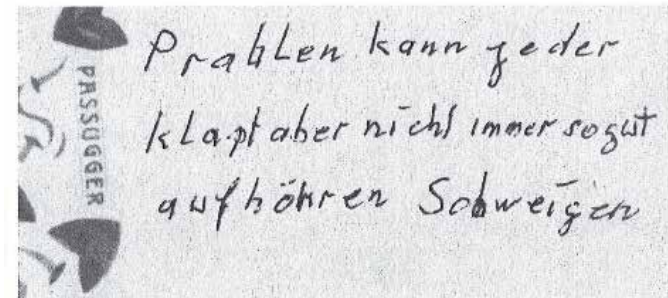 PASSUGGER
Prahlen kann jeder
klapt aber nicht immer so gut
aufhöhren Schweigen